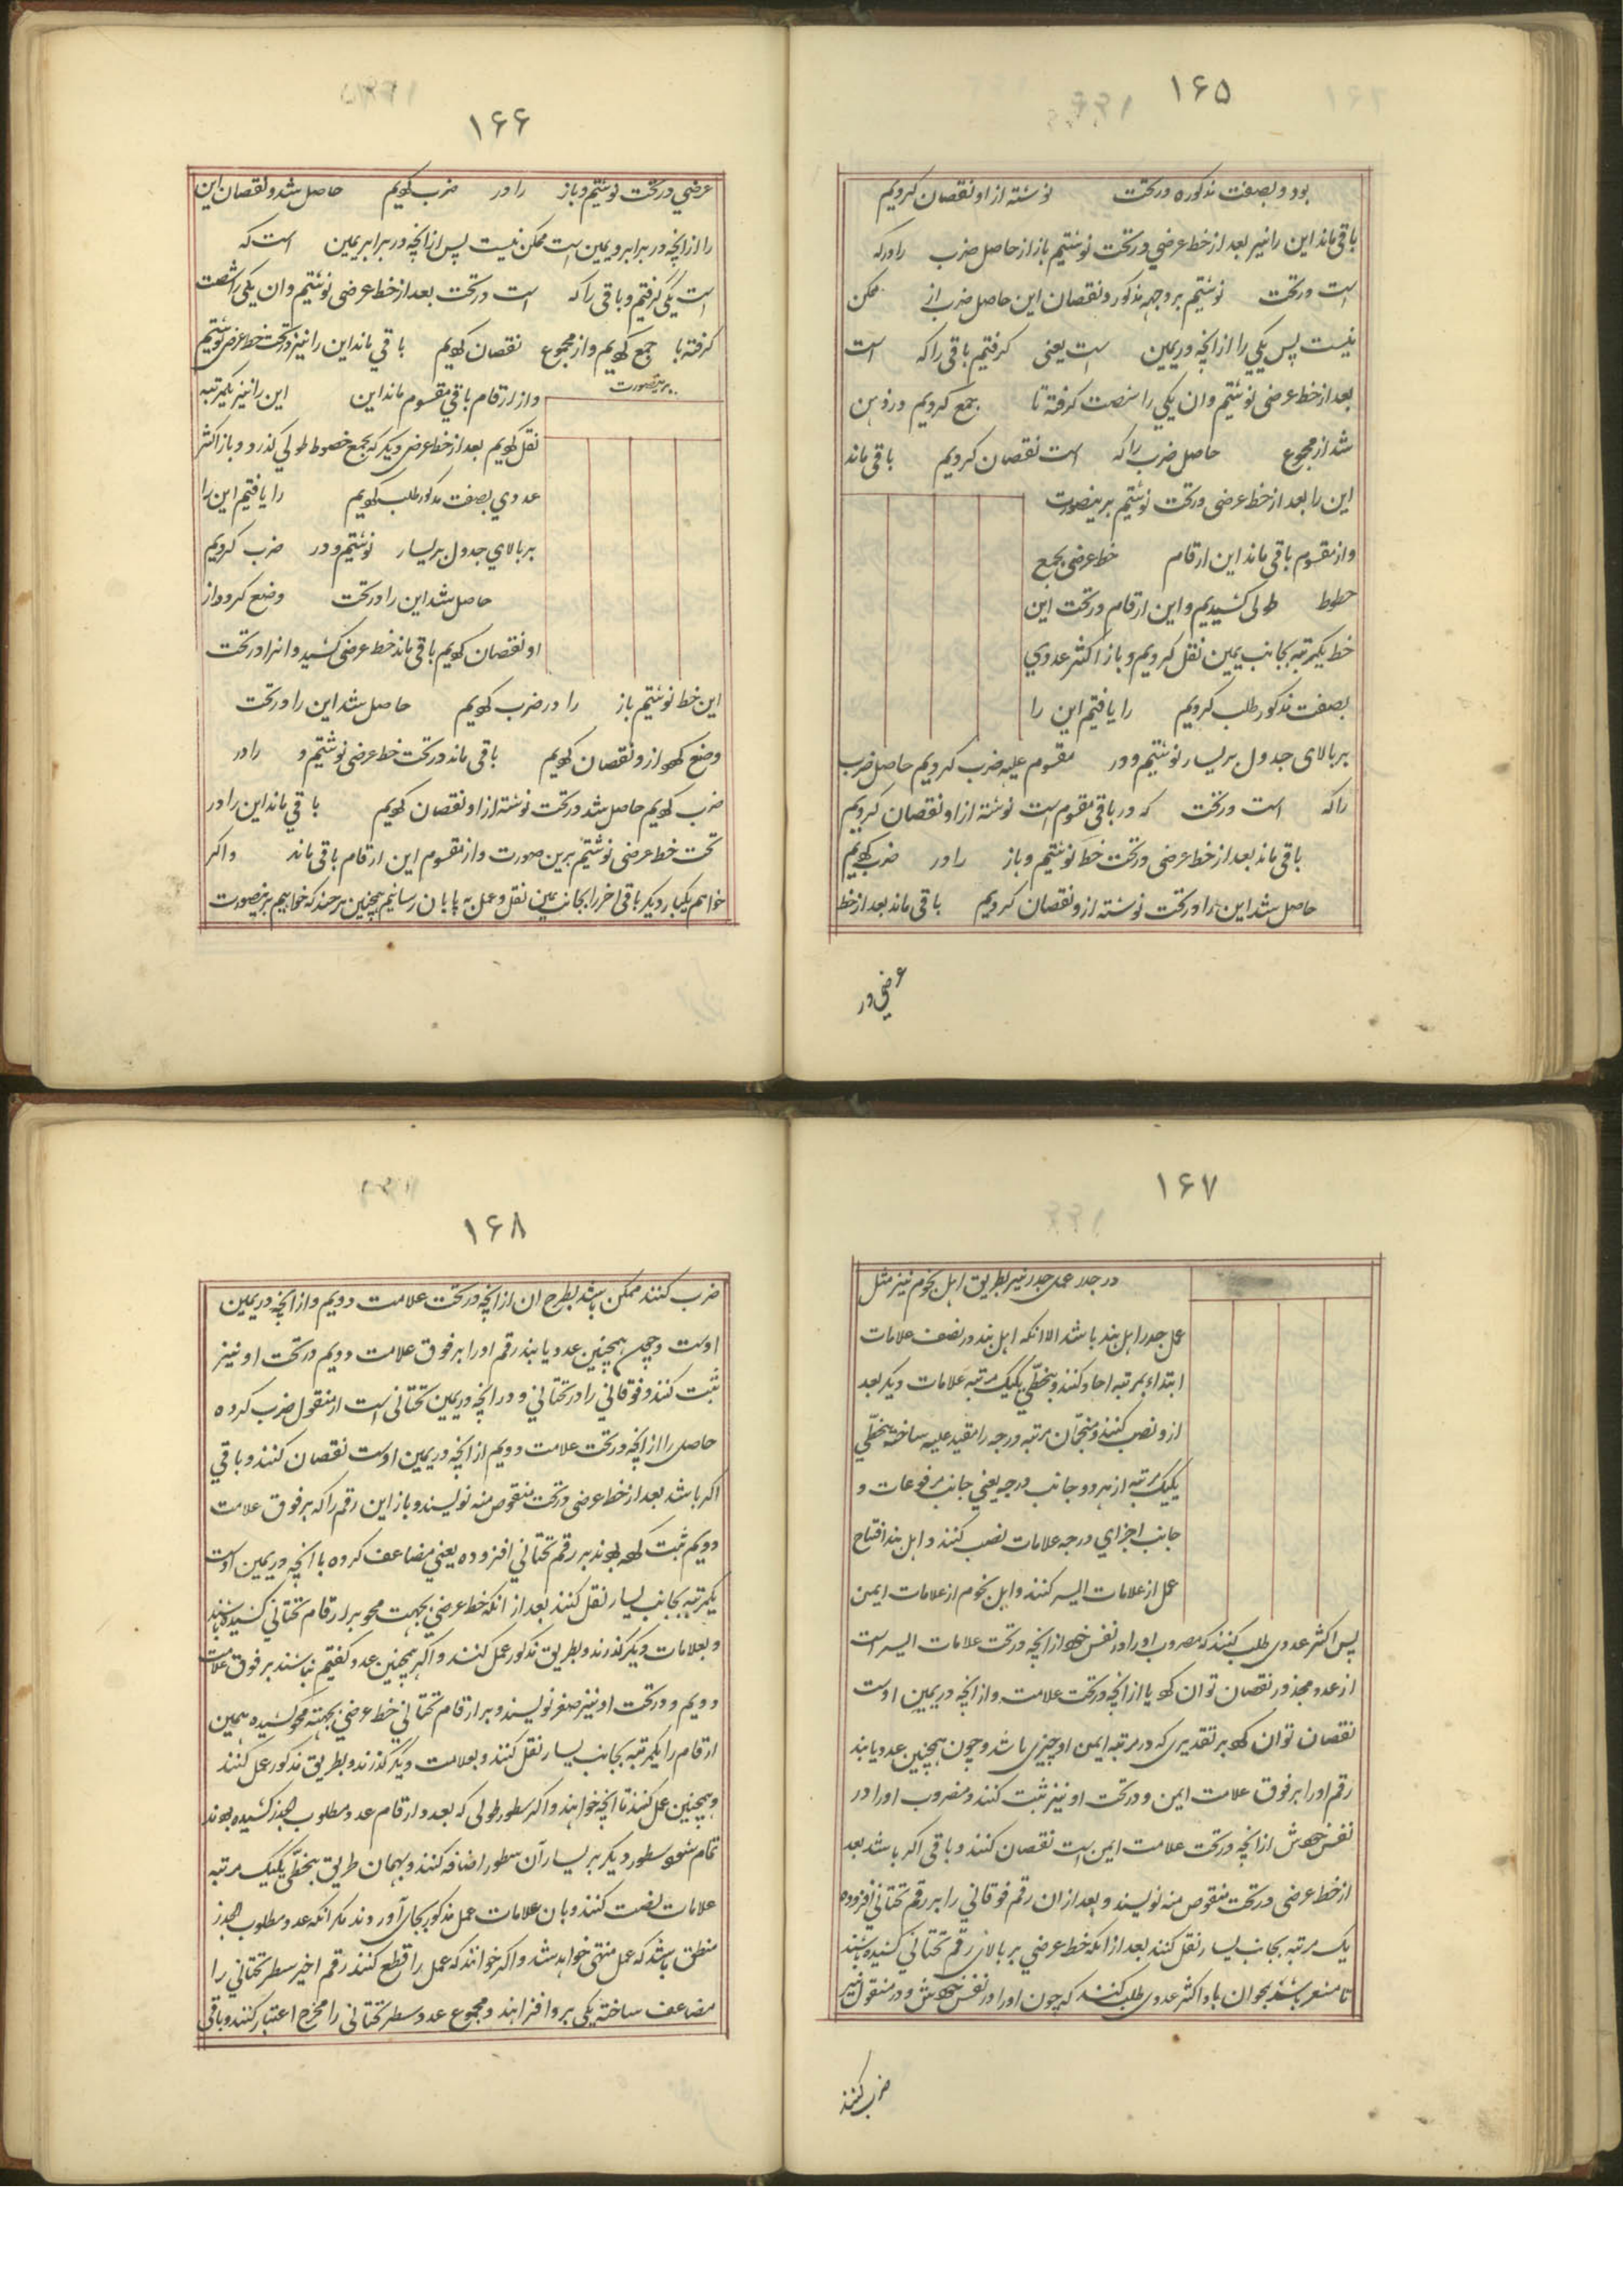 ۱۶۵
بود و بصفت مذکوره در تحت نوشته از او نقصان کردیم
باقی ماند این را نیز بعد از خط عرضی در تحت نوشتیم باز از حاصل ضرب را در که
است در تحت نوشتیم بر وجه مذکور و نقصان این حاصل ضرب از ممکن
نیست پس یکی را از آنچه در یمین است یعنی گرفتیم باقی را که است
بعد از خط عرضی نوشتیم و ان یکی را شصت گرفته با جمع کردیم و در ذهن
شد از مجموع حاصل ضرب را که است نقصان کردیم باقی ماند
این را بعد از خط عرضی در تحت نوشتیم برینصورت
و از مقسوم باقی ماند این ارقام خط عرضی بجمع
خطوط طولی کشیدیم و این ارقام در تحت این
خط یکمرتبه بجانب یمین نقل کردیم و باز اکثر عددی
بصفت مذکور طلب کردیم را یافتیم این را
بر بالای جدول بر یسار نوشتیم و در مقسوم علیه ضرب کردیم حاصل ضرب
را که است در تحت که در باقی مقسوم است نوشته از او نقصان کردیم
باقی ماند بعد از خط عرضی در تحت خط نوشتیم و باز را در ضرب کردیم
حاصل شد این را در تحت نوشته از و نقصان کردیم باقی ماند بعد از خط
عرضی در
۱۶۶
عرضی در تحت نوشتیم و باز را در ضرب کردیم حاصل شد و نقصان این
را از آنچه در برابر و یمین است ممکن نیست پس از آنچه در برابر یمین است که
است یکی گرفتیم و باقی را که است در تحت بعد از خط عرضی نوشتیم و ان یکی را شصت
گرفته با جمع کردیم و از مجموع نقصان کردیم باقی ماند این را نیز در تحت خط عرضی نوشتیم
برینصورت و از ارقام باقی مقسوم ماند این این را نیز یکمرتبه
نقل کردیم بعد از خط عرضی دیگر که بجمع خطوط طولی گذرد و باز اکثر
عددی بصفت مذکور طلب کردیم را یافتیم این را
بر بالای جدول بر یسار نوشتیم و در ضرب کردیم
حاصل شد این را در تحت وضع کرده از
او نقصان کردیم باقی ماند خط عرضی کشید و انرا در تحت
این خط نوشتیم باز را در ضرب کردیم حاصل شد این را در تحت
وضع کرده از و نقصان کردیم باقی ماند در تحت خط عرضی نوشتیم و را در
ضرب کردیم حاصل شد در تحت نوشته از او نقصان کردیم باقی ماند این را در
تحت خط عرضی نوشتیم برین صورت و از مقسوم این ارقام باقی ماند و اگر
خواهم یکبار دیگر باقی اخر را بجانب یمین نقل و عمل به پایان رسانیم همچنین هر چند که خواهیم برینصورت
۱۶۷
در جدر عمل جدر نیز بطریق اهل نجوم نیز مثل
عمل جدر اهل هند باشد الا انکه اهل هند در نصف علامات
ابتداء بمرتبه احاد کنند و بتخطی یکیک مرتبه علامات دیگر بعد
از و نصب کنند و منجمان مرتبه درجه را مقید علیه ساخته بتخطی
یکیک مرتبه از هر دو جانب درجه یعنی جانب مرفوعات و
جانب اجزای درجه علامات نصب کنند و اهل هند افتتاح
عمل از علامات ایسر کنند و اهل نجوم از علامات ایمن
پس اکثر عددی طلب کنند که مضروب او را در نفس خود از آنچه در تحت علامات ایسر است
از عدد مجذور نقصان توان کرد یا از آنچه در تحت علامت و از آنچه در یمین اوست
نقصان توان کرد بر تقدیری که در مرتبه ایمن او چیزی باشد و چون همچنین عدد یابند
رقم او را بر فوق علامت ایمن و در تحت او نیز ثبت کنند و مضروب او را در
نفس خودش از آنچه در تحت علامت ایمن است نقصان کنند و باقی اگر باشد بعد
از خط عرضی در تحت منقوص منه نویسند و بعد از ان رقم فوقانی را بر رقم تحتانی افزوده
یک مرتبه بجانب یسار نقل کنند بعد از انکه خط عرضی بر بالای رقم تحتانی کشیده باشند
تا مشعر باشد بمحو ان باز اکثر عددی طلب کنند که چون او را در نفس خودش و در منقول نیز
ضرب کنند
۱۶۸
ضرب کنند ممکن باشد بطرح ان از آنچه در تحت علامت دویم و از آنچه در یمین
اوست و چون همچنین عدد یابند رقم او را بر فوق علامت دویم در تحت او نیز
ثبت کنند و فوقانی را در تحتانی و در آنچه در یمین تحتانی است از منقول ضرب کرده
حاصل را از آنچه در تحت علامت دویم از آنچه در یمین اوست نقصان کنند و باقی
اگر باشد بعد از خط عرضی در تحت منقوص منه نویسند و باز این رقم را که بر فوق علامت
دویم ثبت کرده بودند بر رقم تحتانی افزوده یعنی مضاعف کرده با آنچه در یمین اوست
یکمرتبه بجانب یسار نقل کنند بعد از انکه خط عرضی بجهت محو بر ارقام تحتانی کشیده باشند
و بعلامات دیگر گذرند و بطریق مذکور عمل کنند و اگر همچنین عدد گفتیم نباشند بر فوق علامت
دویم و در تحت او نیز صفر نویسند و بر ارقام تحتانی خط عرضی بجهته محو کشیده همین
ارقام را یکمرتبه بجانب یسار نقل کنند و بعلامت دیگر گذرند و بطریق مذکور عمل کنند
و همچنین عمل کنند تا آنچه خواهند و اگر سطور طولی که بعدد ارقام عدد مطلوب الجذر کشیده بودند
تمام شود سطور دیگر بر یسار آن سطور اضافه کنند و بهمان طریق بتخطی یکیک مرتبه
علامات نصب کنند و بان علامات عمل مذکور بجای آورند مگر انکه عدد مطلوب الجذر
منطق باشد که عمل منتهی خواهد شد و اگر خواهند که عمل را قطع کنند رقم اخیر سطر تحتانی را
مضاعف ساخته یکی بر و افزایند و مجموع عدد سطر تحتانی را مخرج اعتبار کنند و باقی